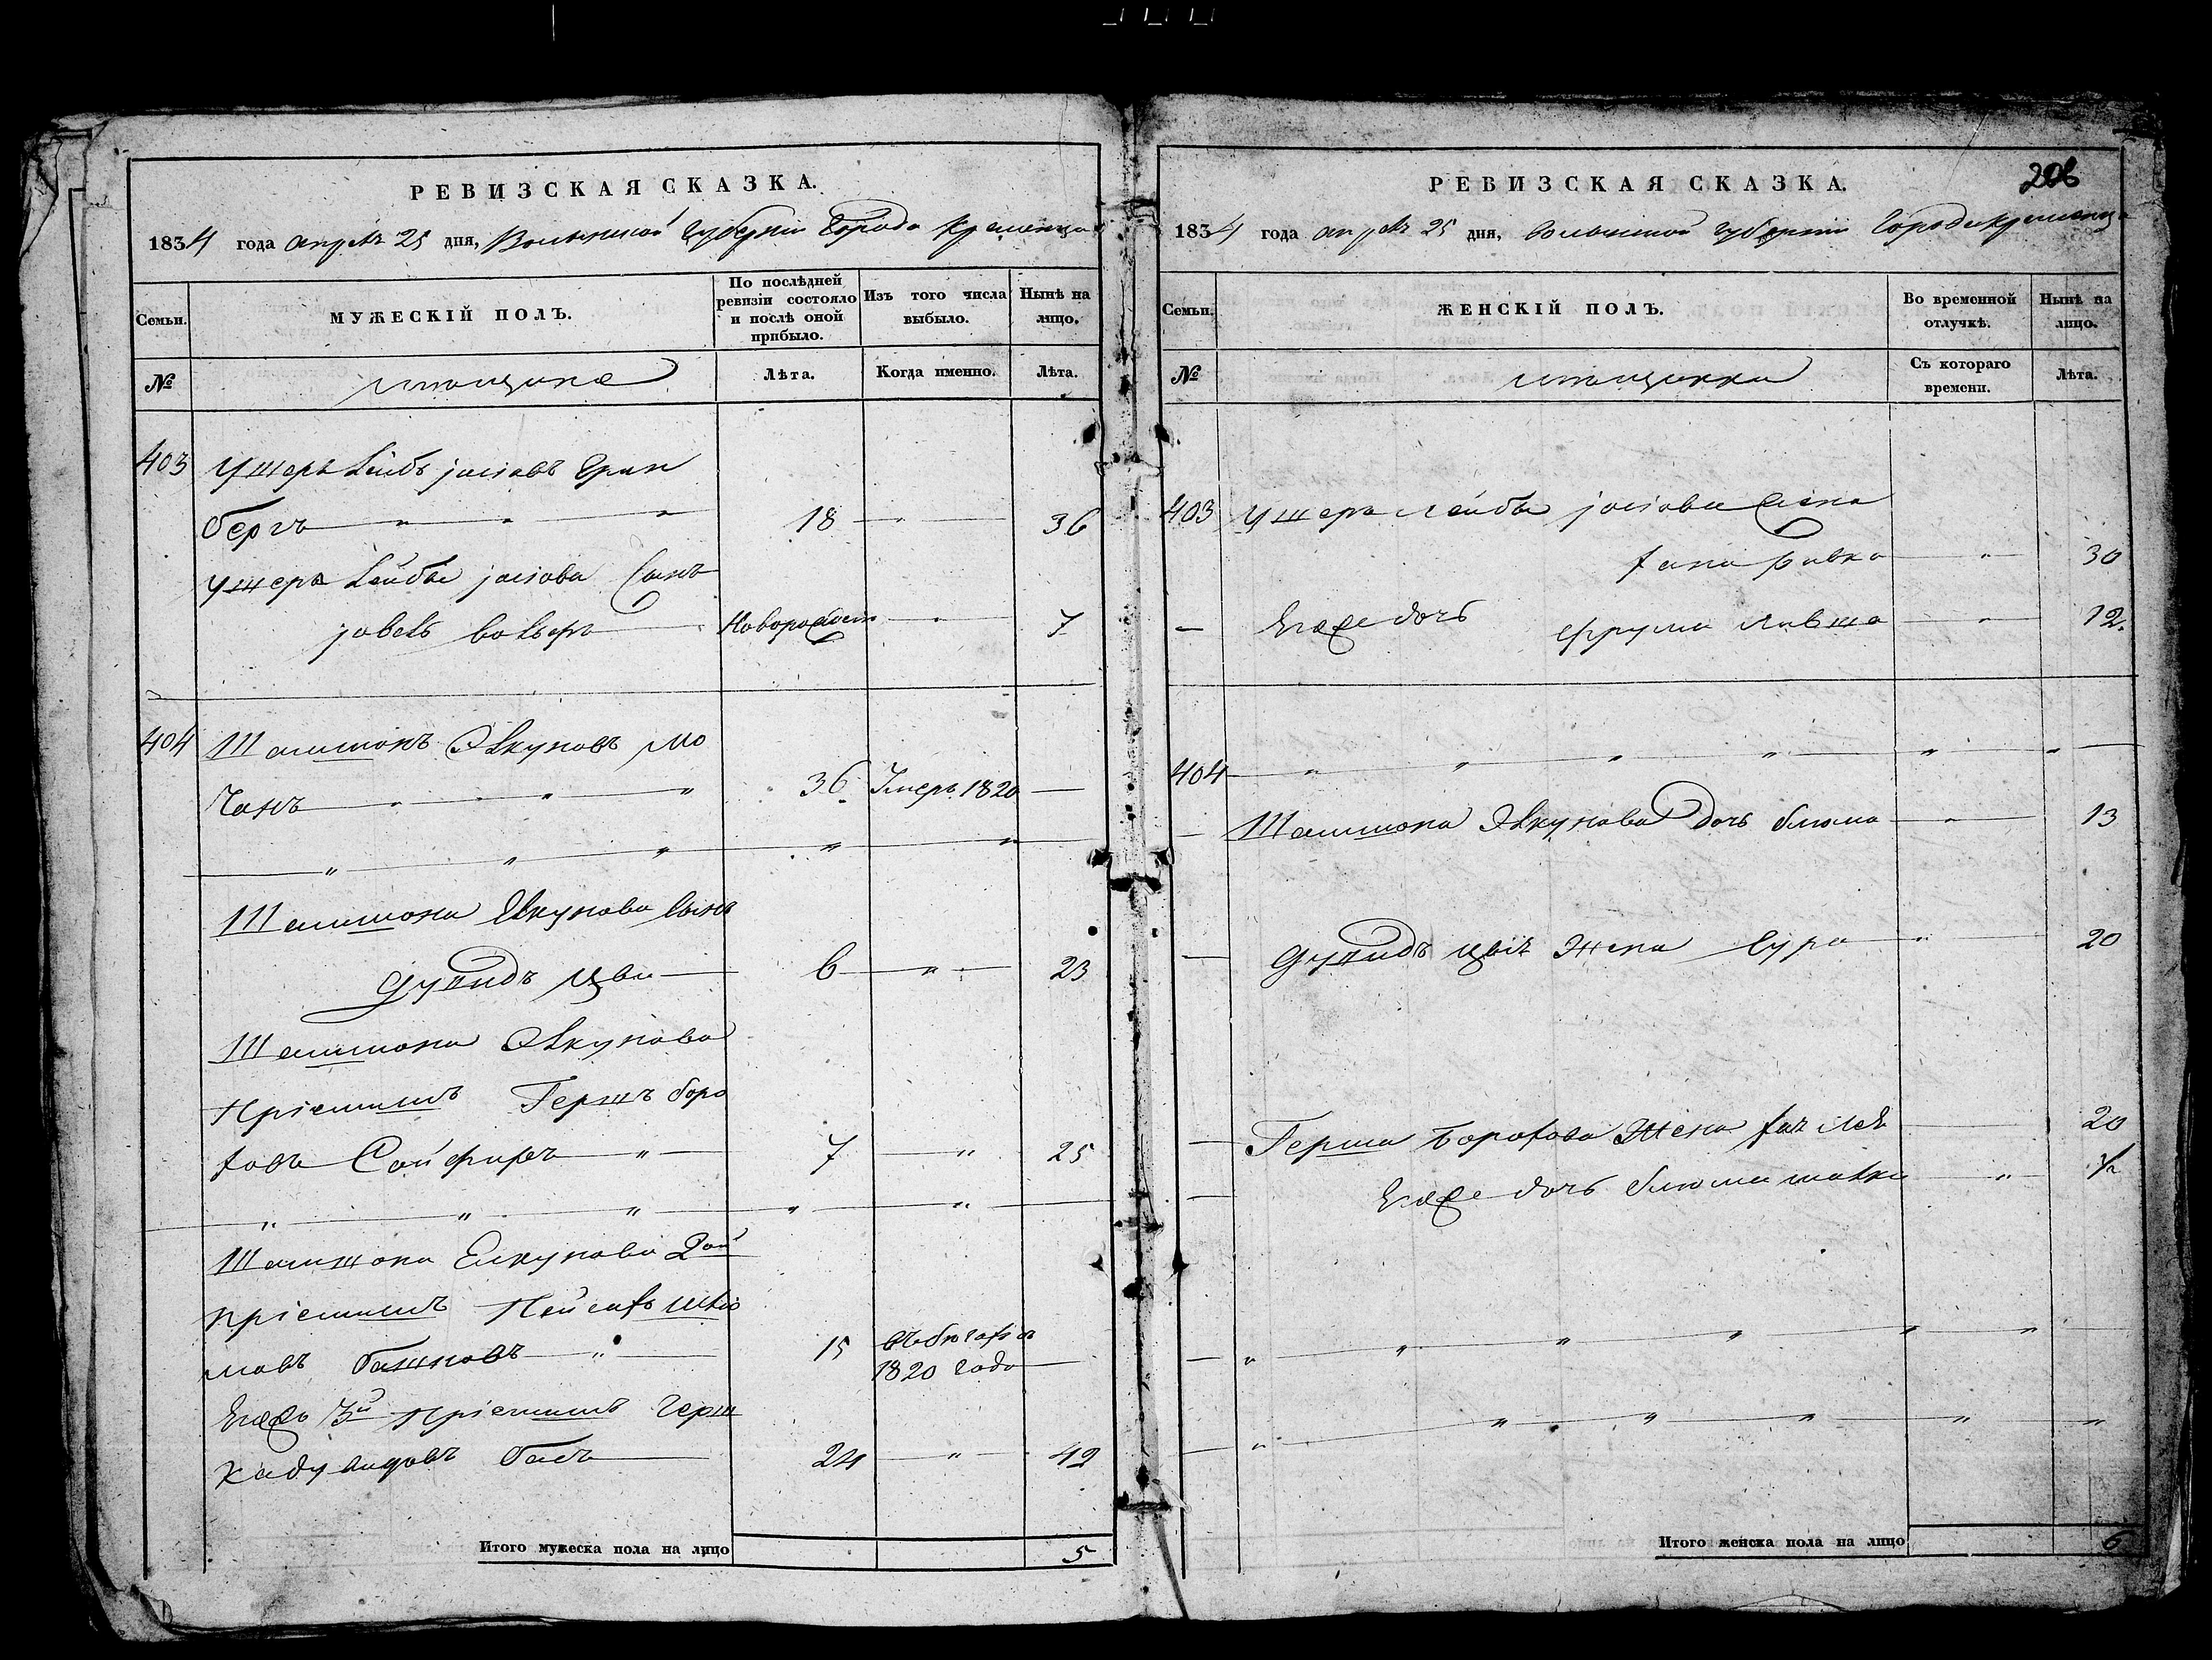 РЕВИЗСКАЯ СКАЗКА.
1834 года апреля 25 дня, Волынской Губернии Города Кременца
Семьи.
МУЖЕСКІЙ ПОЛЪ.
По послѣдней ревизіи состояло и послѣ оной прибыло.
Изъ того числа выбыло.
Нынѣ на лицо.
№
мѣщане
Лѣта.
Когда именно.
Лѣта.
403 Ушеръ Лейбъ Јосіовъ Грин
бергъ 18 36
Ушера Лейбы Јосіова Сынъ
Јовель Вольфъ Новорожден 7
404 Шамшонъ Элкуновъ Мо
чанъ 36 Умеръ 1820
Шамшона Элкунова Сынъ
Дувидъ Цви 6 23
Шамшона Элкунова
Пріемишъ Гершъ Боро
ховъ Сойферъ 7 25
Шамшона Елкунова 2ой
пріемишъ Пейсахъ
мовъ 15
1820 года
Его же 3й Пріемишъ Герш
ко Дувидовъ 24 42
Итого мужеска пола на лицо 5
РЕВИЗСКАЯ СКАЗКА.
206
1834 года апреля 25 дня, Волынской Губернии Города Кременца
Семьи.
ЖЕНСКІЙ ПОЛЪ.
Во временной отлучкѣ.
Нынѣ на лицо.
№
мѣщанки
Съ котораго времени.
Лѣта.
403 Ушера Лейбы Јосіова Жена
Хана Ривка 30
Его же дочь Фрума 12.
404
Шамшона Элкунова дочь Блюма 13
Дувидъ Цви Жена Сура 20
Герша Борохова Жена 20
Его же дочь Блюма 1/2
Итого женска пола на лицо 6